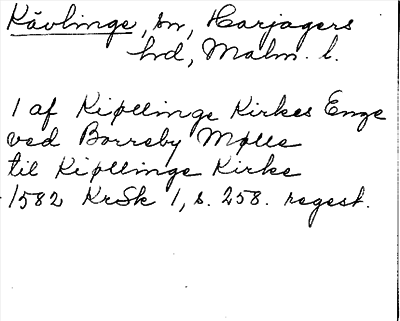 Kävlinge, sn, Harjagers
hd, Malm. l.
1 af Kiøllinge Kirkes Enge
ved Borreby Mølle
til Kiøllinge Kirke
1582 KrSk 1, s. 258. regest.